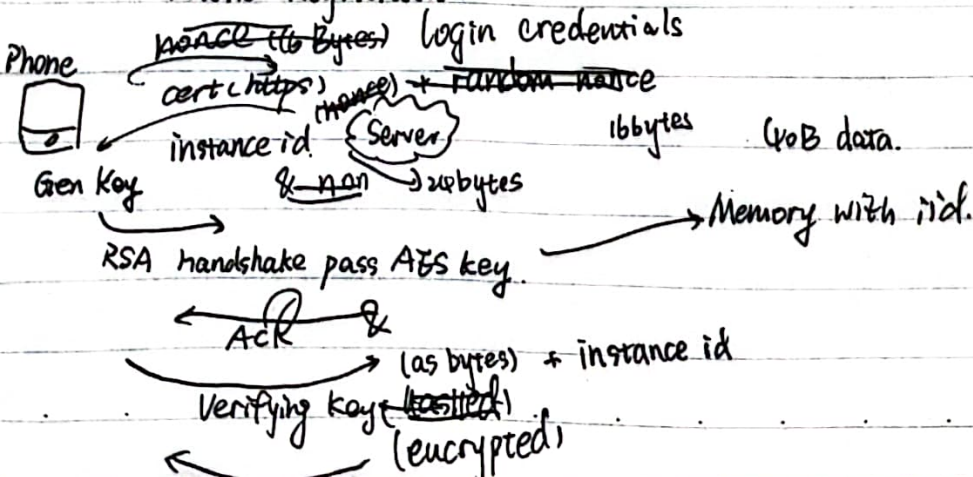 nonce (16 Bytes) login credentials
Phone
cert (https) (nonce) + random nonce
instance id. Server 16bytes 40B data.
Gen Key & non 24bytes
Memory with iid.
RSA handshake pass AES key.
ACK &
(as bytes) + instance id
Verifying key (hashed)
(encrypted)